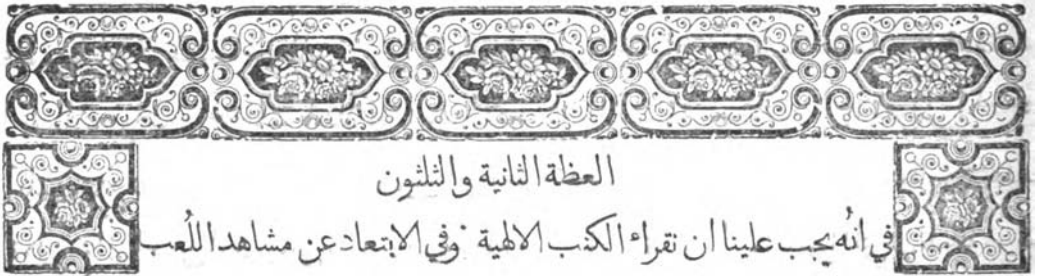 العظة الثانية والثلثون
في أنه يجب علينا ان نقراء الكتب الالهية وفي الابتعاد عن مشاهد اللُعب